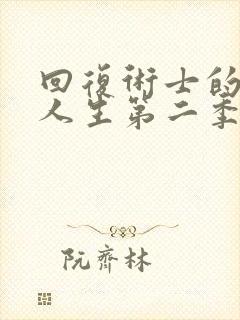 回復術士的
人生第二季
阮齊林